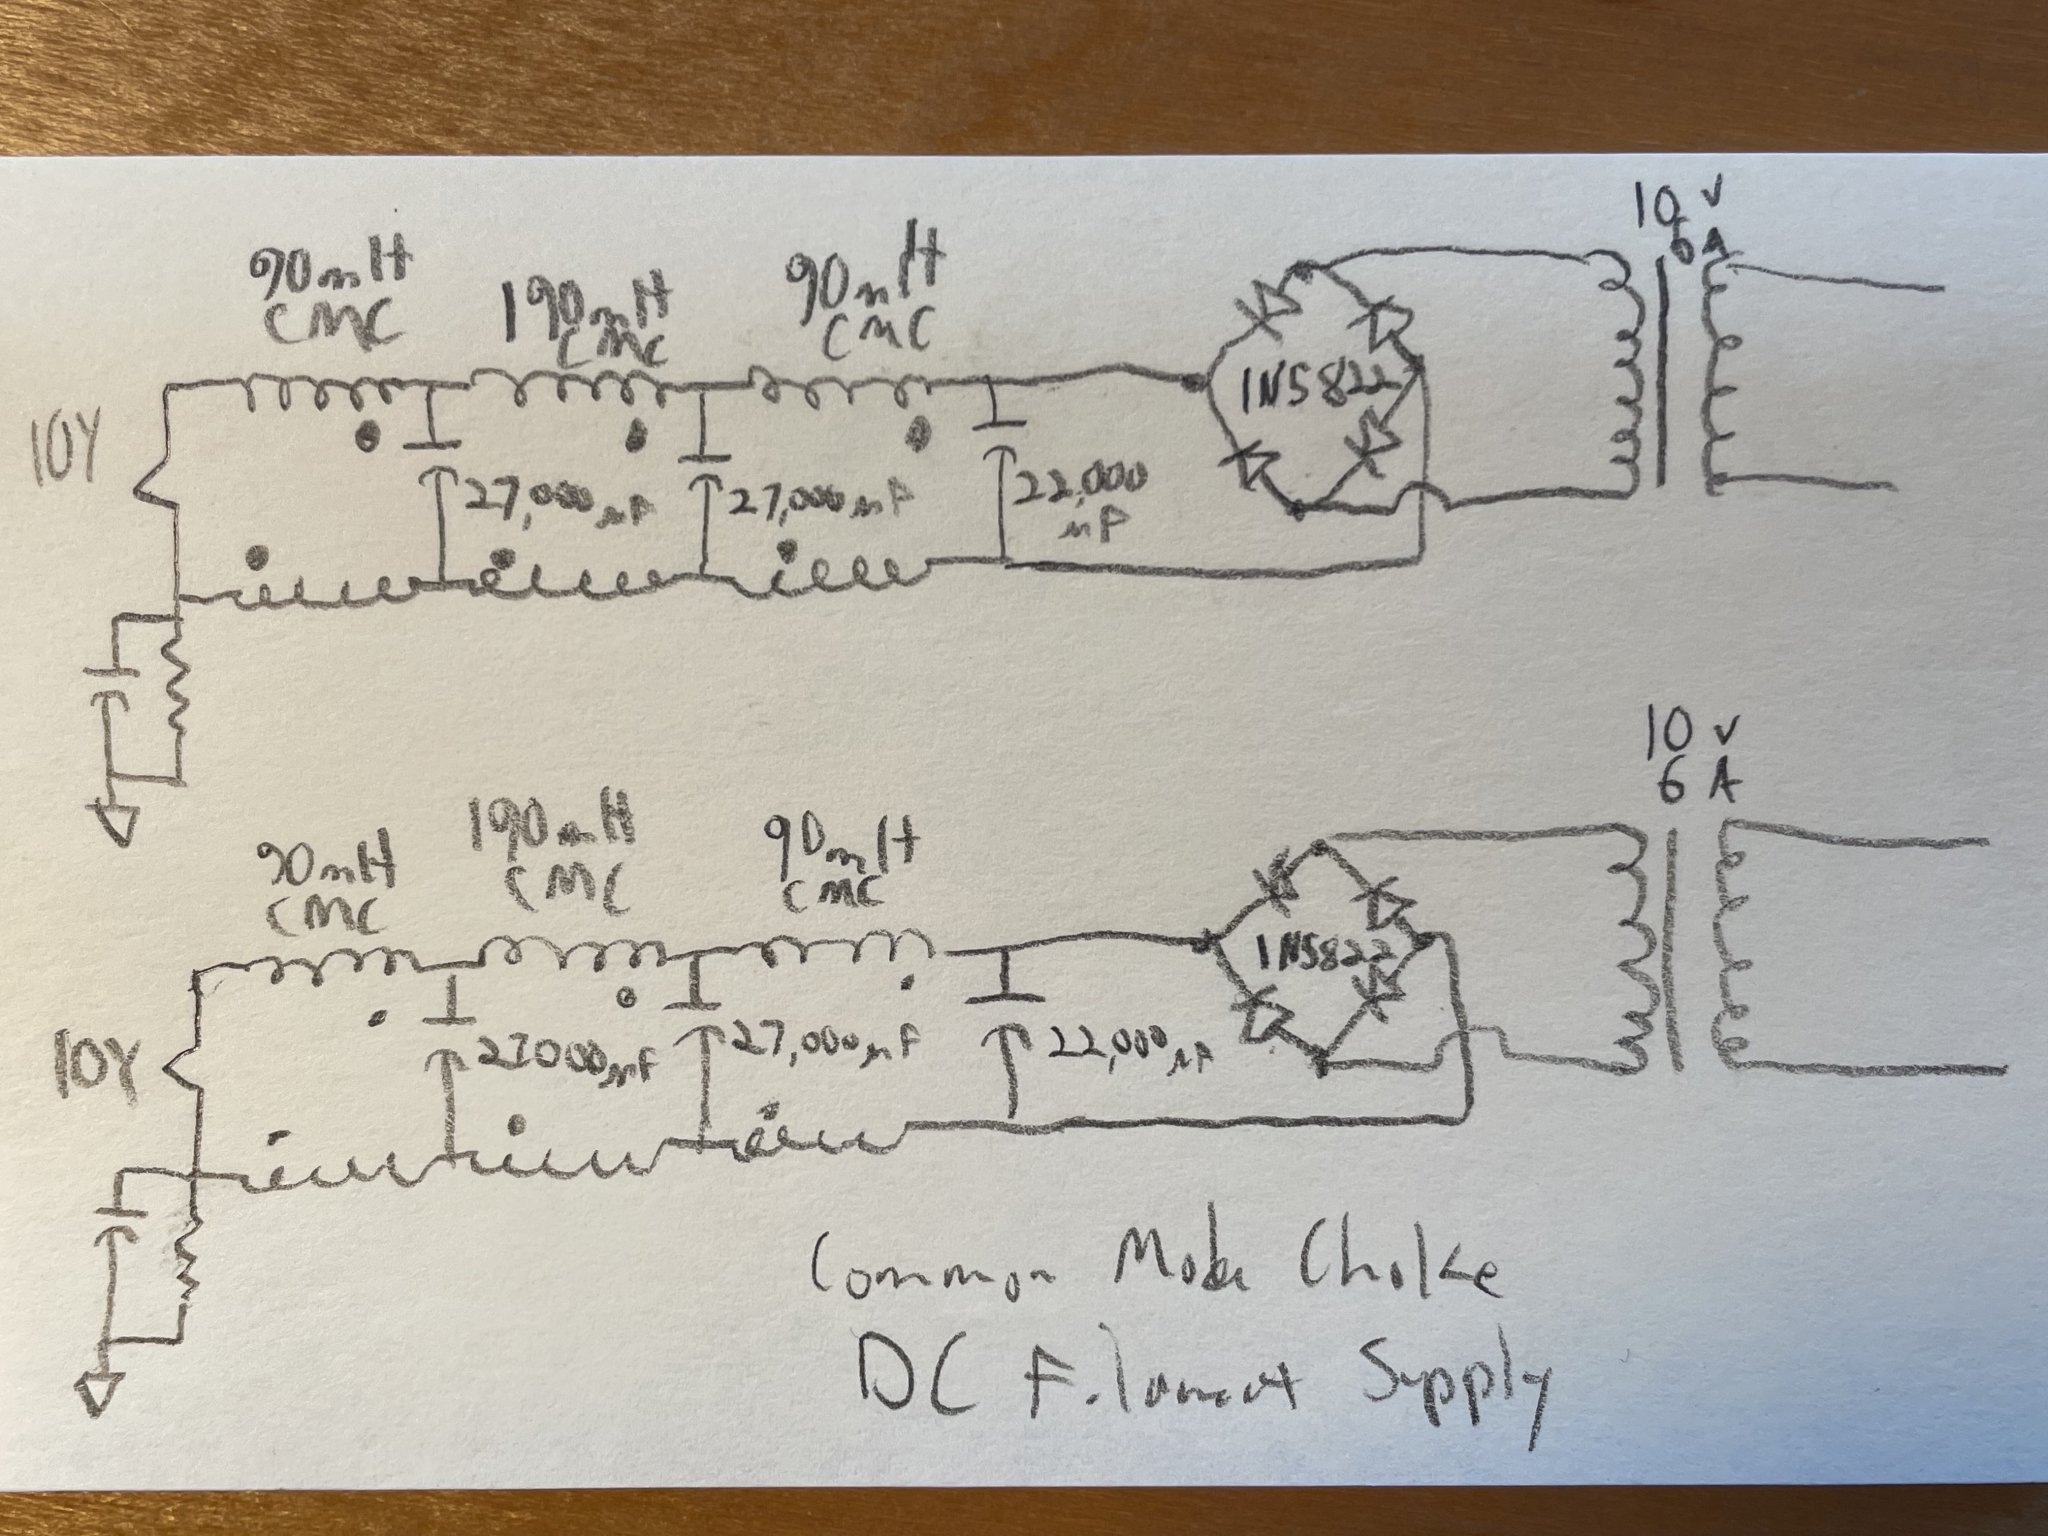 10 V
6 A
90mH
CMC
190mH
CMC
90mH
CMC
10Y
1N5822
27,000µF
27,000µF
22,000
µF
10 V
6 A
90mH
CMC
190mH
CMC
90mH
CMC
10Y
1N5822
27000µF
27,000µF
22,000µF
Common Mode Choke
DC Filament Supply